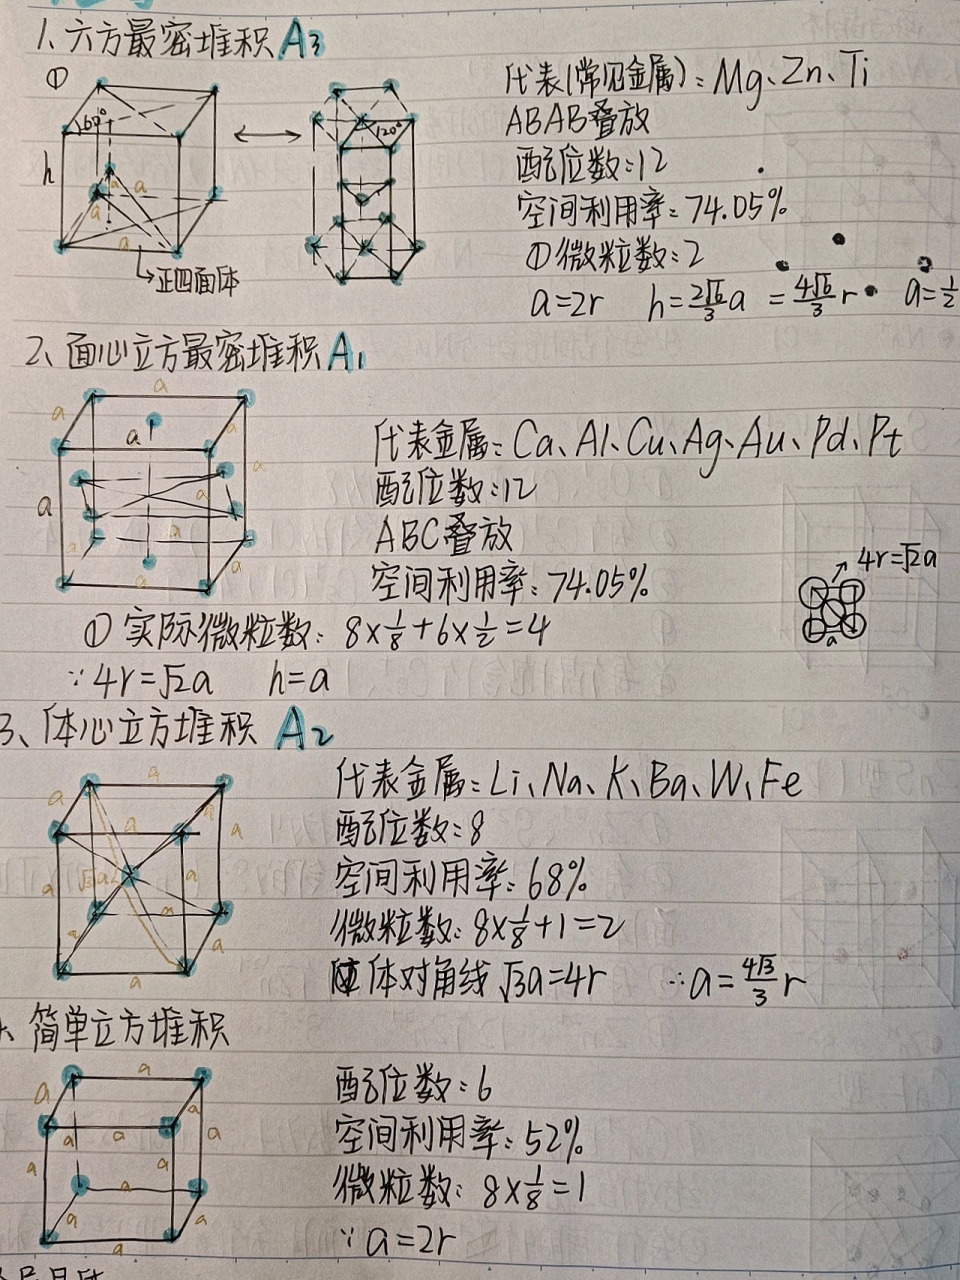 1、六方最密堆积 A3
①
60°
120°
h
a
a
a
a
正四面体
代表(常见金属):Mg、Zn、Ti
ABAB叠放
配位数:12
空间利用率:74.05%
①微粒数:2
a=2r h=2√6/3 a =4√6/3 r a=1/2
2、面心立方最密堆积 A1
a
a
a
a
a
a
a
a
a
a
a
代表金属:Ca、Al、Cu、Ag、Au、Pd、Pt
配位数:12
ABC叠放
空间利用率:74.05%
4r=√2a
a
①实际微粒数:8×1/8+6×1/2=4
∵4r=√2a h=a
3、体心立方堆积 A2
a
a
a
a
a
a
√3a
a
a
a
a
代表金属:Li、Na、K、Ba、W、Fe
配位数:8
空间利用率:68%
微粒数:8×1/8+1=2
体对角线√3a=4r ∴a=4√3/3 r
、简单立方堆积
a
a
a
a
a
a
a
a
a
a
a
a
配位数:6
空间利用率:52%
微粒数:8×1/8=1
∵a=2r